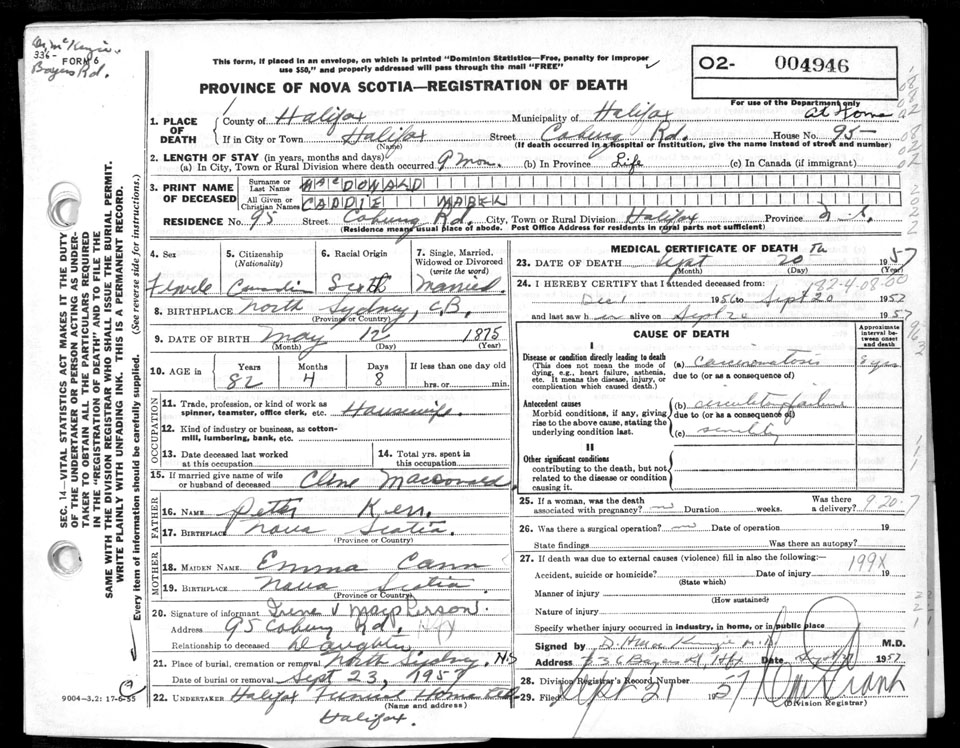 Dr. McKenzie
336-
FORM 6
Bayers Rd.
This form, if placed in an envelope, on which is printed "Dominion Statistics—Free, penalty for improper
use $50," and properly addressed will pass through the mail "FREE"
O2- 004946
For use of the Department only
PROVINCE OF NOVA SCOTIA—REGISTRATION OF DEATH
1. PLACE OF DEATH
County of Halifax Municipality of Halifax At Home
If in City or Town Halifax Street Coburg Rd. House No. 95
(Name) (If death occurred in a hospital or institution, give the name instead of street and number)
2. LENGTH OF STAY (in years, months and days)
(a) In City, Town or Rural Division where death occurred 9 mon. (b) In Province Life (c) In Canada (if immigrant)
3. PRINT NAME OF DECEASED
Surname or Last Name MacDONALD
All Given or Christian Names CADDIE MABEL
RESIDENCE No. 95 Street Coburg Rd. City, Town or Rural Division Halifax Province N.S.
(Residence means usual place of abode. Post Office Address for residents in rural parts not sufficient)
4. Sex 5. Citizenship (Nationality) 6. Racial Origin 7. Single, Married, Widowed or Divorced (write the word)
Female Married
8. BIRTHPLACE North Sydney, C.B.
(Province or Country)
9. DATE OF BIRTH May 12 1875
(Month) (Day) (Year)
10. AGE in Years Months Days If less than one day old
82 4 8 hrs. or min.
OCCUPATION
11. Trade, profession, or kind of work as spinner, teamster, office clerk, etc. Housewife.
12. Kind of industry or business, as cotton-mill, lumbering, bank, etc.
13. Date deceased last worked at this occupation 14. Total yrs. spent in this occupation
15. If married give name of wife or husband of deceased Macdonald
FATHER
16. NAME Peter Kerr
17. BIRTHPLACE Nova Scotia
(Province or Country)
MOTHER
18. MAIDEN NAME Emma Cann
19. BIRTHPLACE Nova Scotia
(Province or Country)
20. Signature of informant Irene V MacPherson.
Address 95 Coburg Rd. Hfx
Relationship to deceased Daughter
21. Place of burial, cremation or removal North Sydney, NS
Date of burial or removal Sept 23, 1957
22. UNDERTAKER Halifax Funeral Home Ltd.
(Name and address)
Halifax.
MEDICAL CERTIFICATE OF DEATH
23. DATE OF DEATH Sept 20th 1957
(Month) (Day) (Year)
24. I HEREBY CERTIFY that I attended deceased from:
182-4-08-00
Dec 1 1956 to Sept 20 1957
and last saw her alive on Sept 20 1957
CAUSE OF DEATH
Approximate interval between onset and death
I
Disease or condition directly leading to death
(This does not mean the mode of dying, e.g., heart failure, asthenia, etc. It means the disease, injury, or complication which caused death.)
(a) carcinomatosis
due to (or as a consequence of)
Antecedent causes
Morbid conditions, if any, giving rise to the above cause, stating the underlying condition last.
(b) circulatory failure
due to (or as a consequence of)
(c) senility
II
Other significant conditions
contributing to the death, but not related to the disease or condition causing it.
25. If a woman, was the death associated with pregnancy? no Duration weeks. Was there a delivery?
9-20-7
26. Was there a surgical operation? no Date of operation 19
State findings Was there an autopsy?
27. If death was due to external causes (violence) fill in also the following:
199X
Accident, suicide or homicide? Date of injury 19
(State which)
Manner of injury
(How sustained)
Nature of injury
Specify whether injury occurred in industry, in home, or in public place
Signed by M.D.
Address 336 Bayers Rd, Hfx Date Sept 1957
28. Division Registrar's Record Number
29. Filed Sept 21 1957
(Division Registrar)
SEC. 14—VITAL STATISTICS ACT MAKES IT THE DUTY
OF THE UNDERTAKER OR PERSON ACTING AS UNDER-
TAKER TO OBTAIN ALL THE PARTICULARS REQUIRED
IN THE "REGISTRATION OF DEATH" AND TO FILE THE
SAME WITH THE DIVISION REGISTRAR WHO SHALL ISSUE THE BURIAL PERMIT.
WRITE PLAINLY WITH UNFADING INK. THIS IS A PERMANENT RECORD.
Every item of information should be carefully supplied. (See reverse side for instructions.)
9004-3.2: 17-6-55